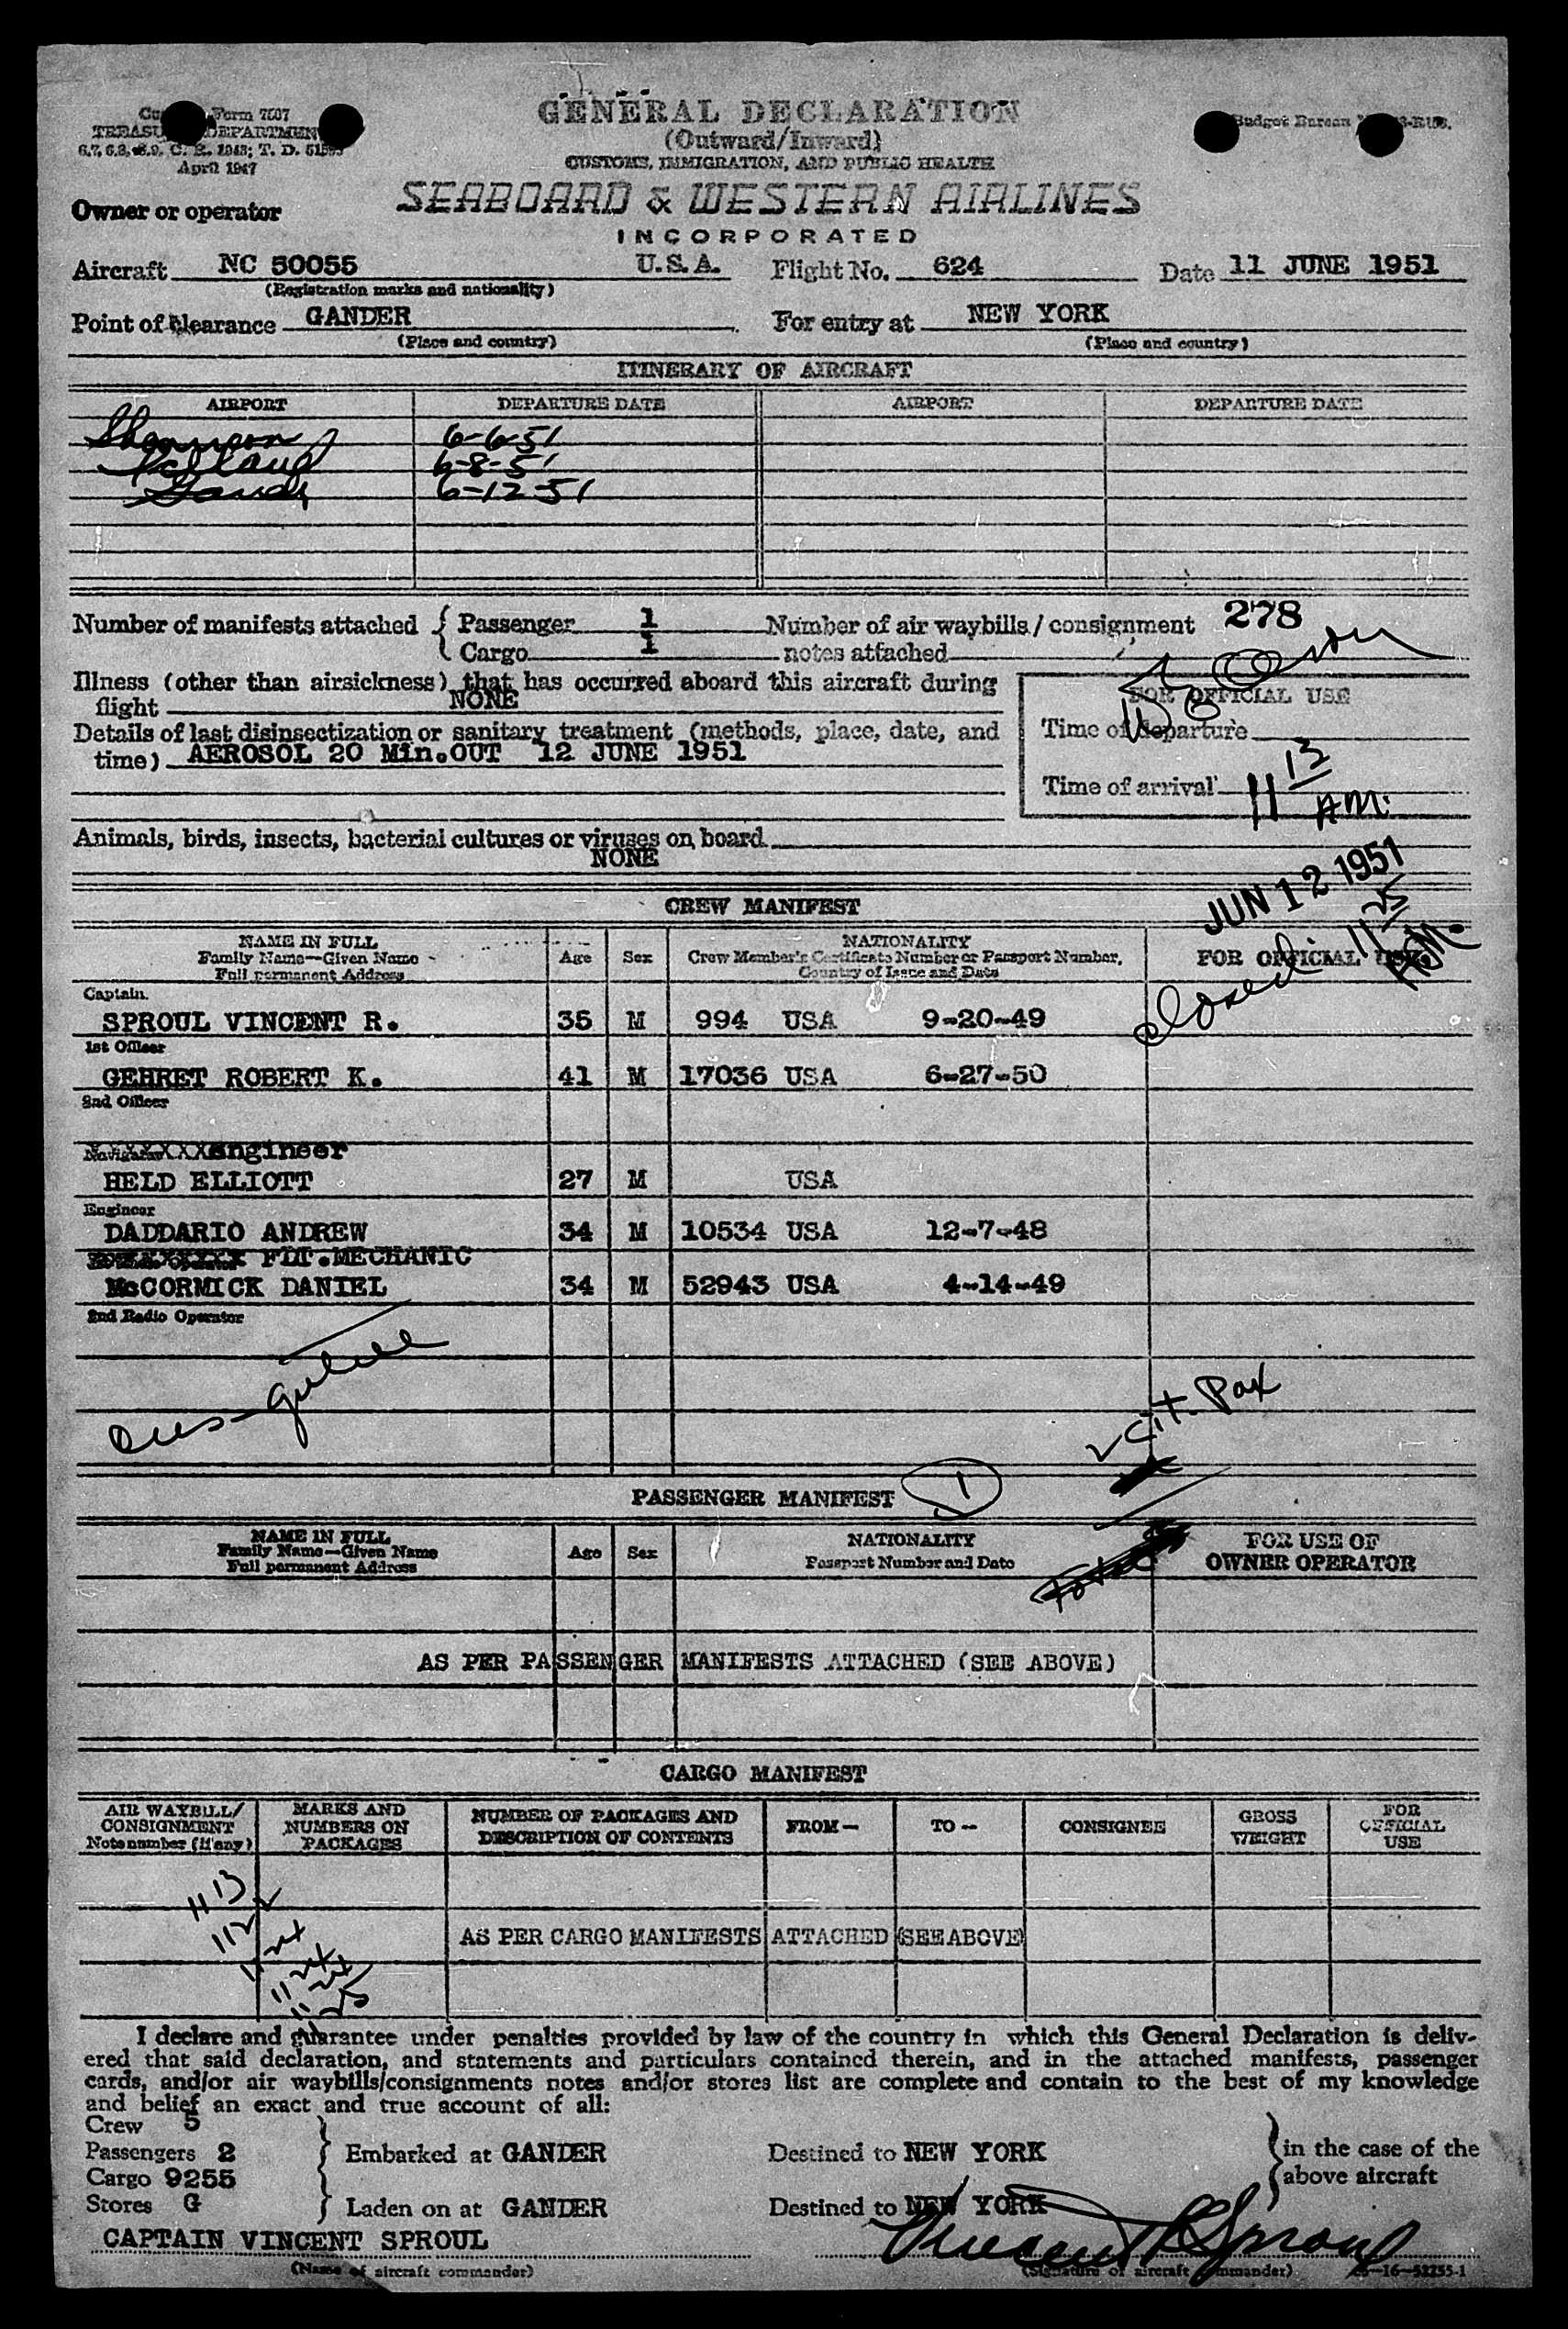 GENERAL DECLARATION
(Outward/Inward)
CUSTOMS, IMMIGRATION, AND PUBLIC HEALTH
Form 7507
TREASU DEPARTMEN
April 1947
Budget Bureau
Owner or operator
SEABOARD & WESTERN AIRLINES
INCORPORATED
Aircraft NC 50055 U.S.A. Flight No. 624 Date 11 JUNE 1951
(Registration marks and nationality)
Point of Clearance GANDER For entry at NEW YORK
(Place and country) (Place and country)
ITINERARY OF AIRCRAFT
AIRPORT DEPARTURE DATE AIRPORT DEPARTURE DATE
Shannon 6-6-51
Iceland 6-8-51
Gander 6-12-51
Number of manifests attached { Passenger 1 Number of air waybills/consignment 278
Cargo 1 notes attached
Illness (other than airsickness) that has occurred aboard this aircraft during
flight NONE
FOR OFFICIAL USE
Details of last disinsectization or sanitary treatment (methods, place, date, and
time) AEROSOL 20 Min.OUT 12 JUNE 1951
Time of departure
Time of arrival 11 13 AM.
Animals, birds, insects, bacterial cultures or viruses on board
NONE
JUN 12 1951
Closed 11 25 A.M.
CREW MANIFEST
NAME IN FULL
Family Name—Given Name
Full permanent Address
Age Sex
NATIONALITY
Crew Member's Certificate Number or Passport Number,
Country of Issue and Date
FOR OFFICIAL USE
Captain
SPROUL VINCENT R. 35 M 994 USA 9-20-49
1st Officer
GEHRET ROBERT K. 41 M 17036 USA 6-27-50
2nd Officer
Navigator XXXXXXX engineer
HELD ELLIOTT 27 M USA
Engineer
DADDARIO ANDREW 34 M 10534 USA 12-7-48
FLT.MECHANIC
McCORMICK DANIEL 34 M 52943 USA 4-14-49
2nd Radio Operator
cit. Pax
PASSENGER MANIFEST 1
NAME IN FULL
Family Name—Given Name
Full permanent Address
Age Sex
NATIONALITY
Passport Number and Date
Total
FOR USE OF
OWNER OPERATOR
AS PER PASSENGER MANIFESTS ATTACHED (SEE ABOVE)
CARGO MANIFEST
AIR WAYBILL/
CONSIGNMENT
Note number (if any)
MARKS AND
NUMBERS ON
PACKAGES
NUMBER OF PACKAGES AND
DESCRIPTION OF CONTENTS
FROM— TO— CONSIGNEE
GROSS
WEIGHT
FOR
OFFICIAL
USE
11 13
11 22
11 24
11 24
11 24
11 25
AS PER CARGO MANIFESTS ATTACHED (SEE ABOVE)
I declare and guarantee under penalties provided by law of the country in which this General Declaration is deliv-
ered that said declaration, and statements and particulars contained therein, and in the attached manifests, passenger
cards, and/or air waybills/consignments notes and/or stores list are complete and contain to the best of my knowledge
and belief an exact and true account of all:
Crew 5
Passengers 2 Embarked at GANDER Destined to NEW YORK in the case of the
Cargo 9255 above aircraft
Stores G Laden on at GANDER Destined to NEW YORK
CAPTAIN VINCENT SPROUL Vincent R Sproul
(Name of aircraft commander) (Signature of aircraft commander) 16—52255-1